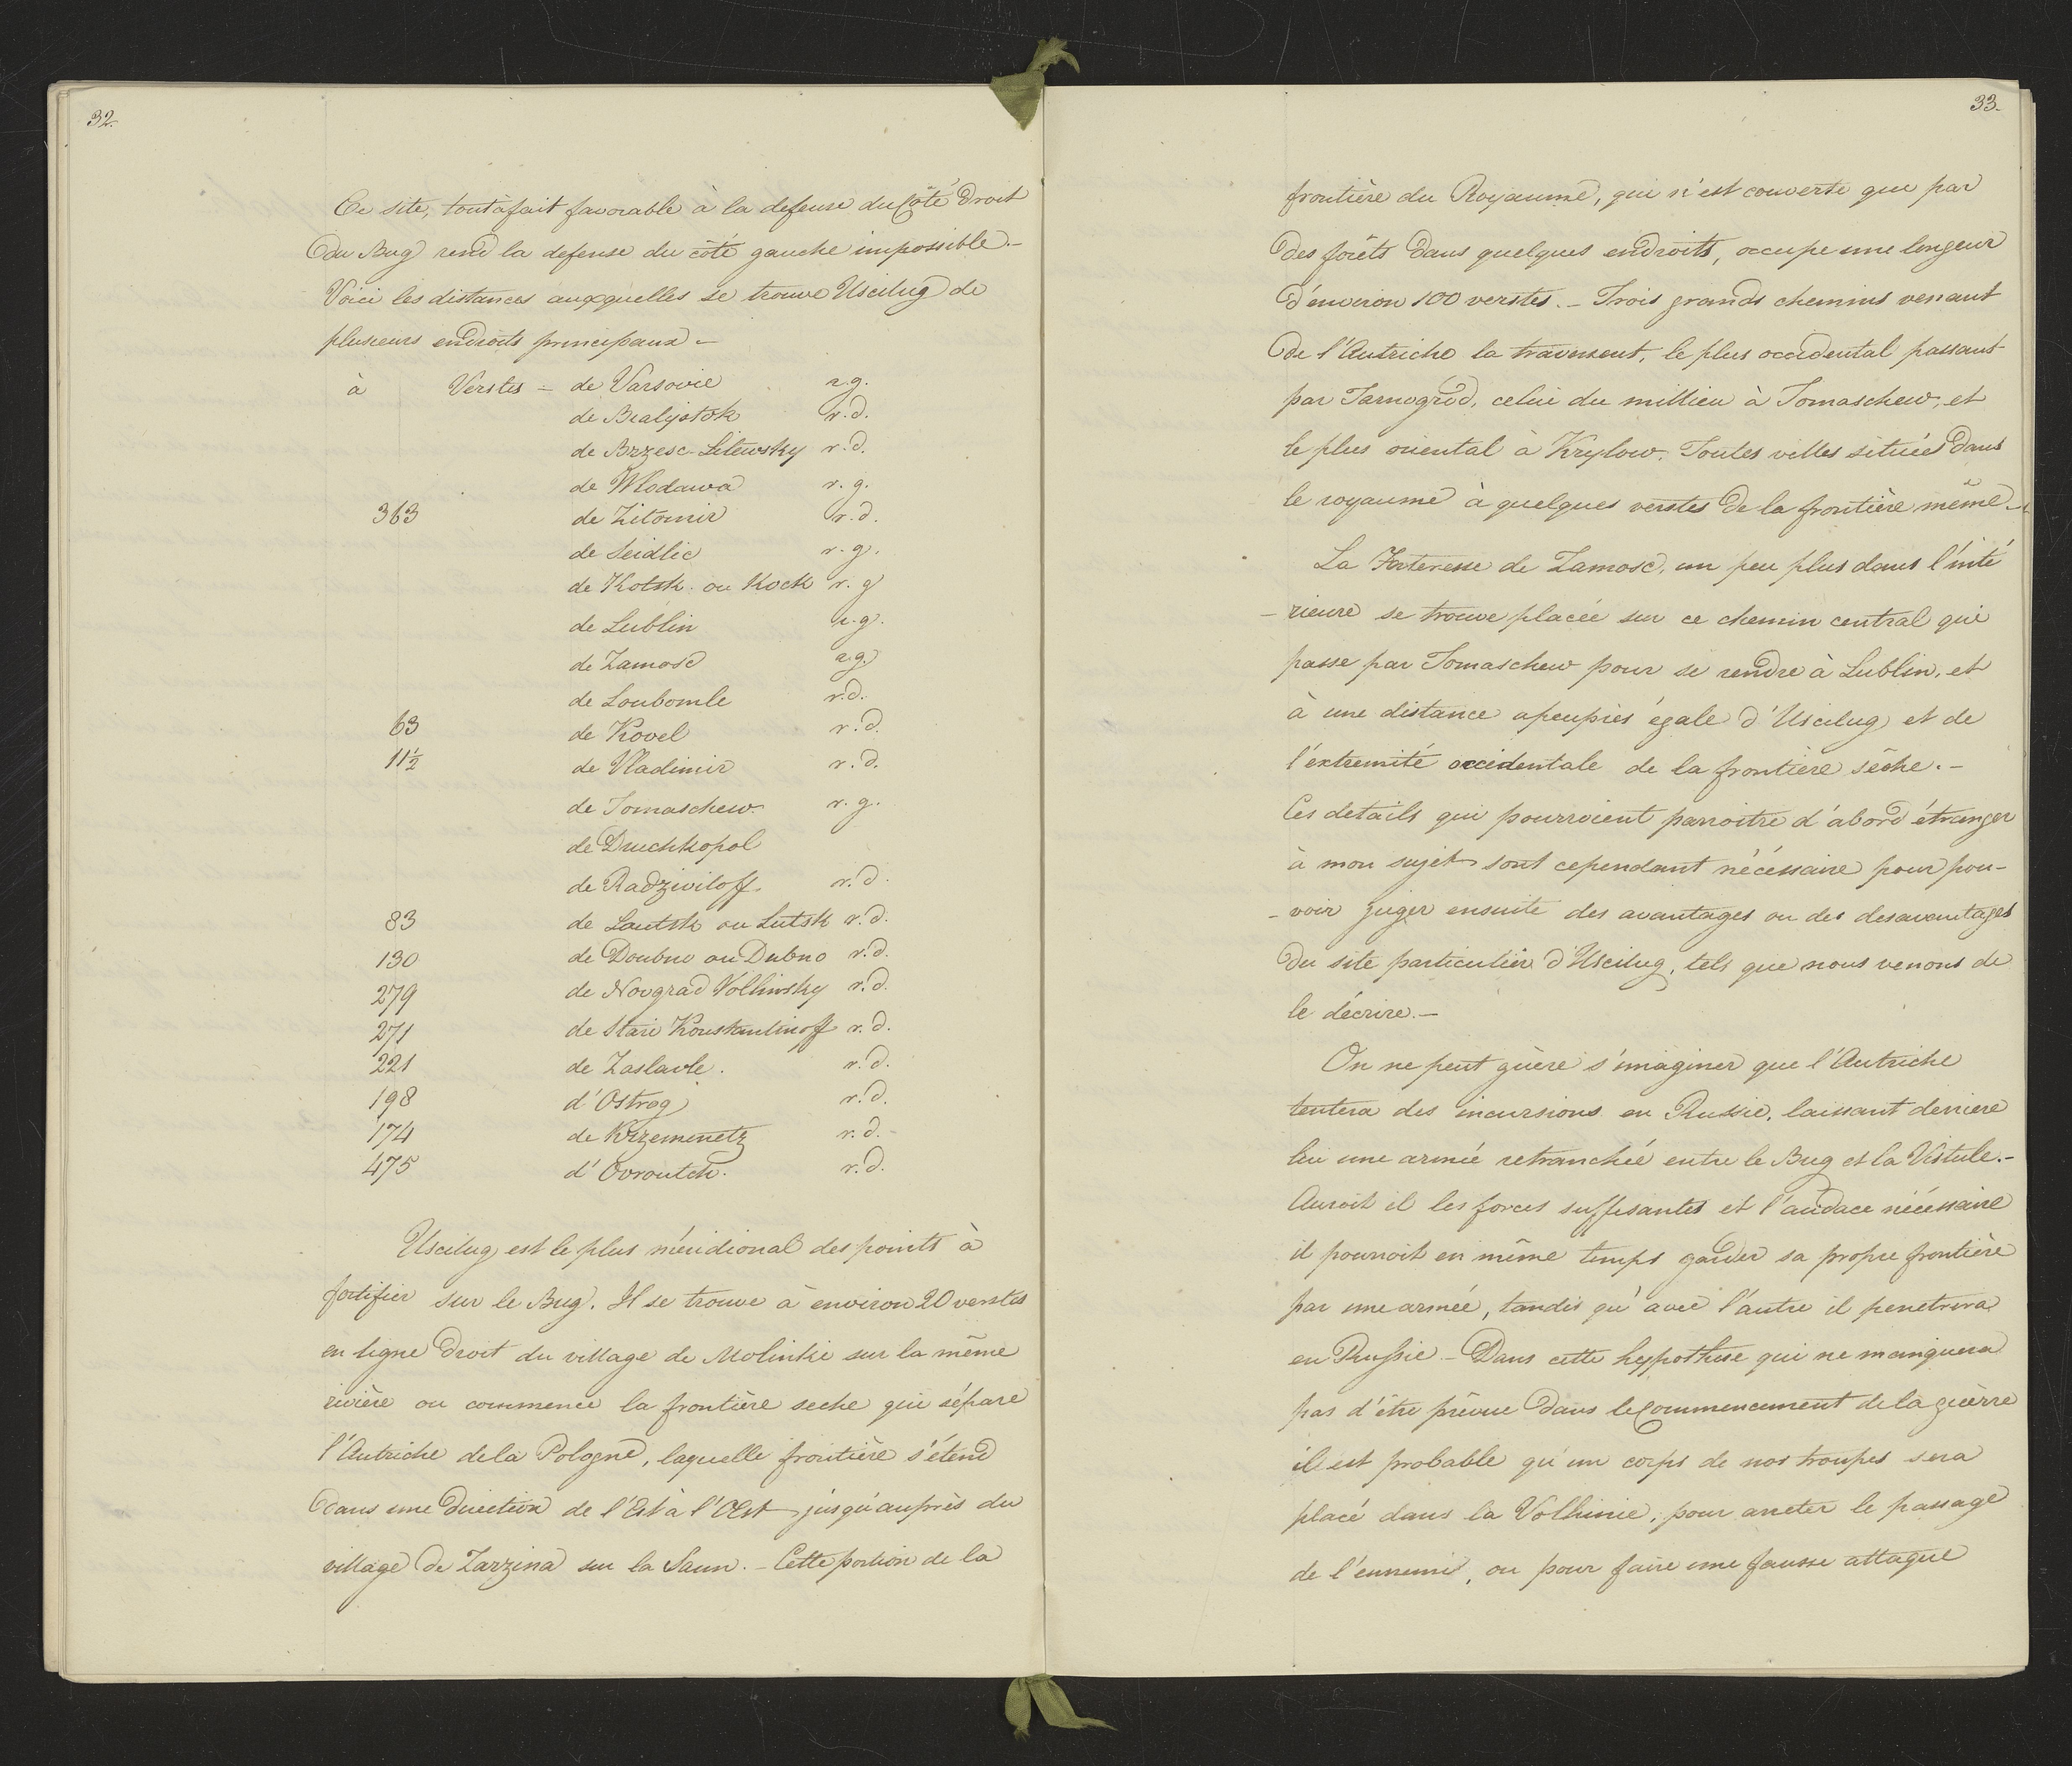 32.
Ce site, toutàfait favorable à la defense du Côté droit
du Bug rend la defense du côté gauche impossible. -
Voici les distances auxquelles se trouve Uscilug de
plusieurs endroits principaux -
à Verstes - de Varsovie r.g.
de Bialystok r.d.
de Brzesc-Litewsky r.d.
de Wlodawa r.g.
363 de Zitomir r.d.
de Seidlic r.g.
de Kotsk. ou Kock r.g
de Lublin r.g.
de Zamosc r.g.
de Loubomle r.d.
63 de Kovel r.d.
11½ de Vladimir r.d.
de Tomaschew r.g.
de Druchkopol
de Radziviloff r.d.
83 de Loutsk ou Lutsk r.d.
130 de Doubno ou Dubno r.d.
279 de Novgrad Volhinsky r.d.
271 de Stare Konstantinoff r.d.
221 de Zaslavle. r.d.
198 d'Ostrog r.d.
174 de Krzemenetz r.d.
475 d'Ovroutch. r.d.
Uscilug est le plus méridional des points à
fortifier sur le Bug. Il se trouve à environ 20 verstes
en ligne droit du village de Molintie sur la même
rivière ou commence la frontière seche qui sépare
l'Autriche de la Pologne, laquelle frontière s'étend
dans une direction de l'Est à l'Oest jusqu'auprès du
village de Zarzina sur la Saun. - Cette portion de la
33.
frontière du Royaume, qui n'est couverte que par
des forêts dans quelques endroits, occupe une longeur
d'environ 100 verstes. - Trois grands chemins venant
de l'Autriche la traversent, le plus occidental passant
par Tarnogrod, celui du millieu à Tomaschew, et
le plus oriental à Krylow. Toutes villes situées dans
le royaume à quelques verstes de la frontière même -
La Forteresse de Zamosc, un peu plus dans l'inté
- rieure se trouve placée sur ce chemin central qui
passe par Tomaschew pour se rendre à Lublin, et
à une distance apeuprès égale d'Uscilug et de
l'éxtremité occidentale de la frontière sèche. -
Ces details qui pourroient parroitre d'abord étranger
à mon sujet sont cependant nécéssaire pour pou-
- voir juger ensuite des avantages ou des desavantages
du site particulier d'Uscilug, tels que nous venons de
le décrire. -
On ne peut guère s'imaginer que l'Autriche
tentera des incursions en Russie, laissant derriere
lui une armée retranchée entre le Bug et la Vistule. -
Auroit il les forces suffisantes et l'audace nécéssaire
il pourroit en même temps garder sa propre frontière
par une armée, tandis qu'avec l'autre il penetrera
en Russie - Dans cette hyppothese qui ne manquera
pas d'être prévue dans le Commencement de la guèrre
il est probable qu'un corps de nos troupes sera
placé dans la Volhinie, pour arreter le passage
de l'ennemi, ou pour faire une fausse attaque